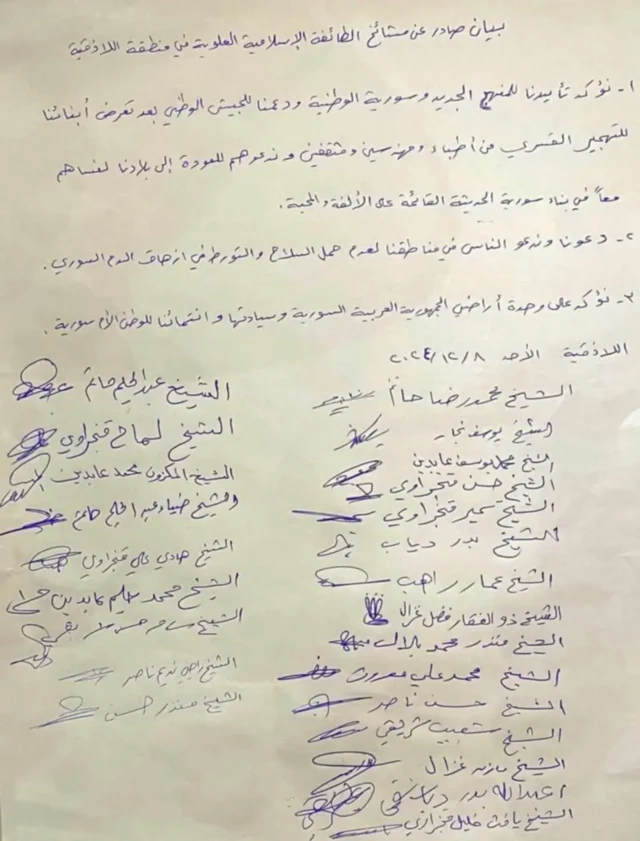 بيان صادر عن مشائخ الطائفة الإسلامية العلوية في منطقة اللاذقية
١- نؤكد تأييدنا للمنهج الجديد وسورية الوطنية ودعمنا للجيش الوطني بعد تعرض أبنائنا
للتهجير القسري من أطباء ومهندسين ومثقفين وندعوهم للعودة إلى بلادنا لنساهم
معاً في بناء سورية الحديثة القائمة على الألفة والمحبة.
٢- دعونا وندعو الناس في مناطقنا لعدم حمل السلاح والتورط في ازهاق الدم السوري.
٣- نؤكد على وحدة أراضي الجمهورية العربية السورية وسيادتها وانتمائنا للوطن الأم سورية.
اللاذقية الأحد ٢٠٢٤/١٢/٨
الشيخ محمد رضا حاتم
الشيخ يوسف نجار
الشيخ محمد يوسف عابدين
الشيخ حسن قنجراوي
الشيخ سمير قنجراوي
الشيخ بدر دياب
الشيخ عمار راهب
الشيخ ذو الفقار فضل غزال
الشيخ منذر محمد بلال
الشيخ محمد علي معروف
الشيخ حسن ناصر
الشيخ شعيب شريقي
الشيخ مازن غزال
عبدالله بدر
الشيخ يافث خليل قنجراوي
الشيخ عبد الحليم حاتم
الشيخ لماح قنجراوي
الشيخ المكزون محمد عابدين
والشيخ ضياء عبد الحليم حاتم
الشيخ هادي علي قنجراوي
الشيخ محمد سليم عابدين
الشيخ
الشيخ راجي نديم ناصر
الشيخ منذر حسن